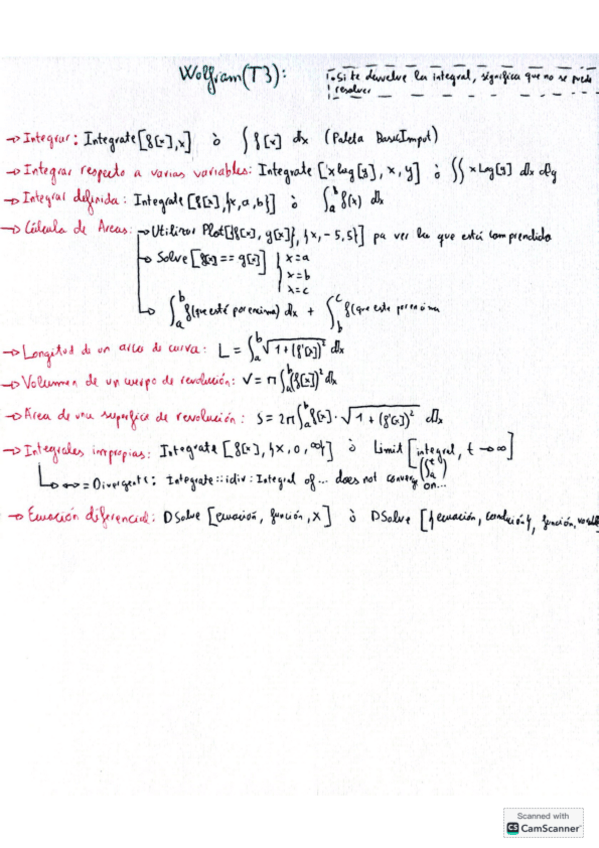 Wolfram (T3):
Si te devuelve la integral, significa que no se puede
resolver
→ Integrar: Integrate[f[x], x] ò ∫ f[x] dx (Paleta BasicImput)
→ Integrar respecto a varias variables: Integrate[x Log[y], x, y] ò ∫∫ x Log[y] dx dy
→ Integral definida: Integrate[f[x], {x, a, b}] ò ∫ₐᵇ f(x) dx
→ Cálculo de Áreas: → Utilizar Plot[{f[x], g[x]}, {x, -5, 5}] pa ver la que está comprendida
→ Solve[f[x] == g[x]] { x=a
x=b
x=c
→ ∫ₐᵇ f(que esté por encima) dx + ∫_b^c f(que este por encima
→ Longitud de un arco de curva: L = ∫ₐᵇ √(1+(f'[x])²) dx
→ Volumen de un cuerpo de revolución: V = π ∫ₐᵇ (f[x])² dx
→ Área de una superficie de revolución: S = 2π ∫ₐᵇ f[x] · √(1+(f'[x])²) dx
→ Integrales impropias: Integrate[f[x], {x, 0, ∞}] ò Limit[integral, t → ∞]
(∫ₐᵗ)
→ ∞ = Divergente: Integrate::idiv: Integral of... does not converge on...
→ Ecuación diferencial: DSolve[ecuación, función, x] ò DSolve[{ecuación, condición}, función, variable
Scanned with
CS CamScanner